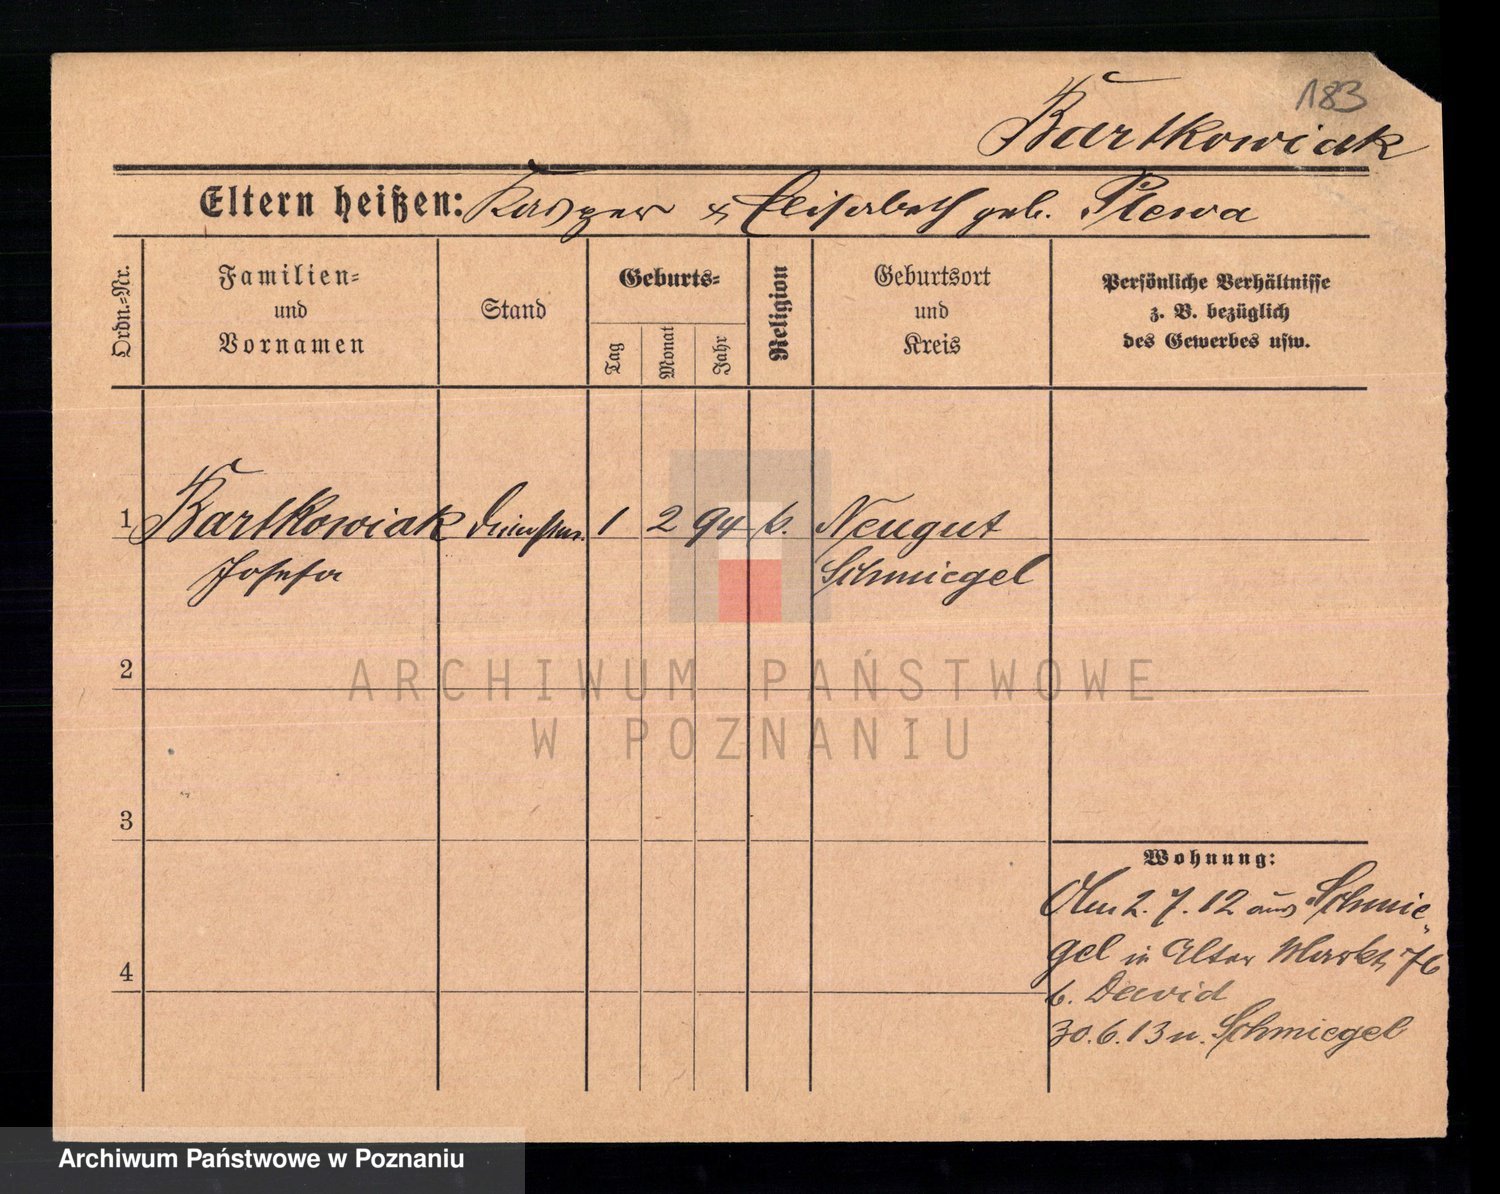 183
Bartkowiak
Eltern heißen: Kasper & Elisabeth geb. Plewa
Ordn.-Nr.
Familien-
und
Vornamen
Stand
Geburts-
Tag
Monat
Jahr
Religion
Geburtsort
und
Kreis
Persönliche Verhältnisse
z. B. bezüglich
des Gewerbes usw.
1 Bartkowiak 1 2 94 k. Neugut
Josefa Schmiegel
2
ARCHIWUM PAŃSTWOWE
W POZNANIU
3
Wohnung:
2.7.12 aus Schmie-
gel in Alter Markt 76
b. David
4
30.6.13 n. Schmiegel
Archiwum Państwowe w Poznaniu